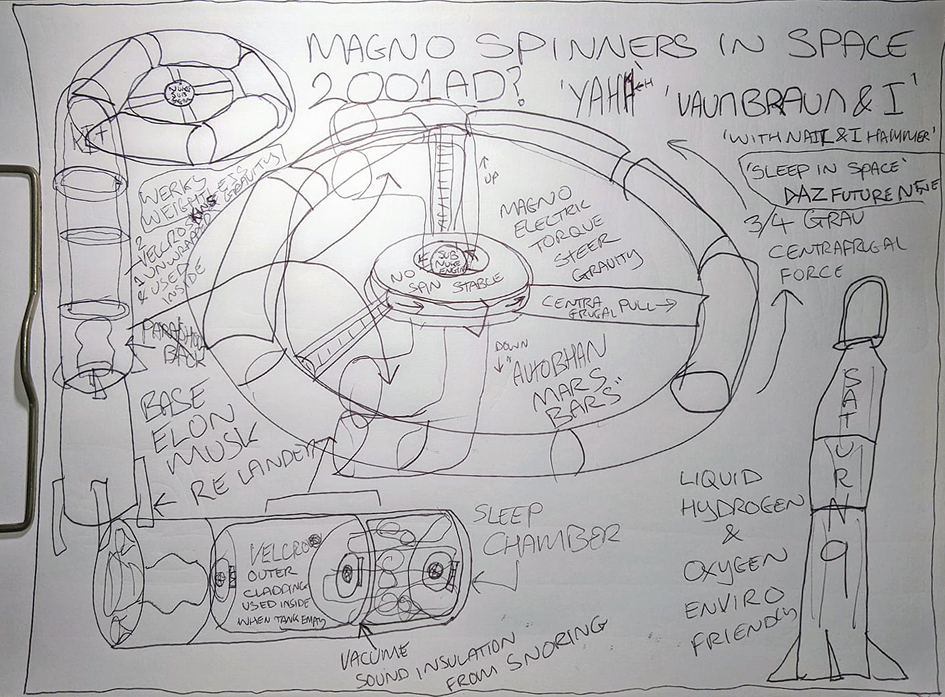 MAGNO SPINNERS IN SPACE
2001AD? 'YAH' 'VAUNBRAUN & I'
'WITH NAIL & I HAMMER'
'SLEEP IN SPACE'
DAZ FUTURE
3/4 GRAV
CENTRAFRUGAL
FORCE
WERKS
WEIGHTLESS
VELCRO
UNWRAPPED
& USED
INSIDE
GRAVITY
BACK
BASE
ELON
MUSK
RE LANDER
UP
MAGNO
ELECTRIC
TORQUE
STEER
GRAVITY
SUB
NUKE
ENGIN
NO
SPIN STABLE
CENTRA
FRUGAL PULL
DOWN
"AUTOBHAN
MARS
BARS"
SATURN 9
LIQUID
HYDROGEN
&
OXYGEN
ENVIRO
FRIENDLY
SLEEP
CHAMBER
VELCRO
OUTER
CLADDING
USED INSIDE
WHEN TANK EMPTY
VACUME
SOUND INSULATION
FROM SNORING